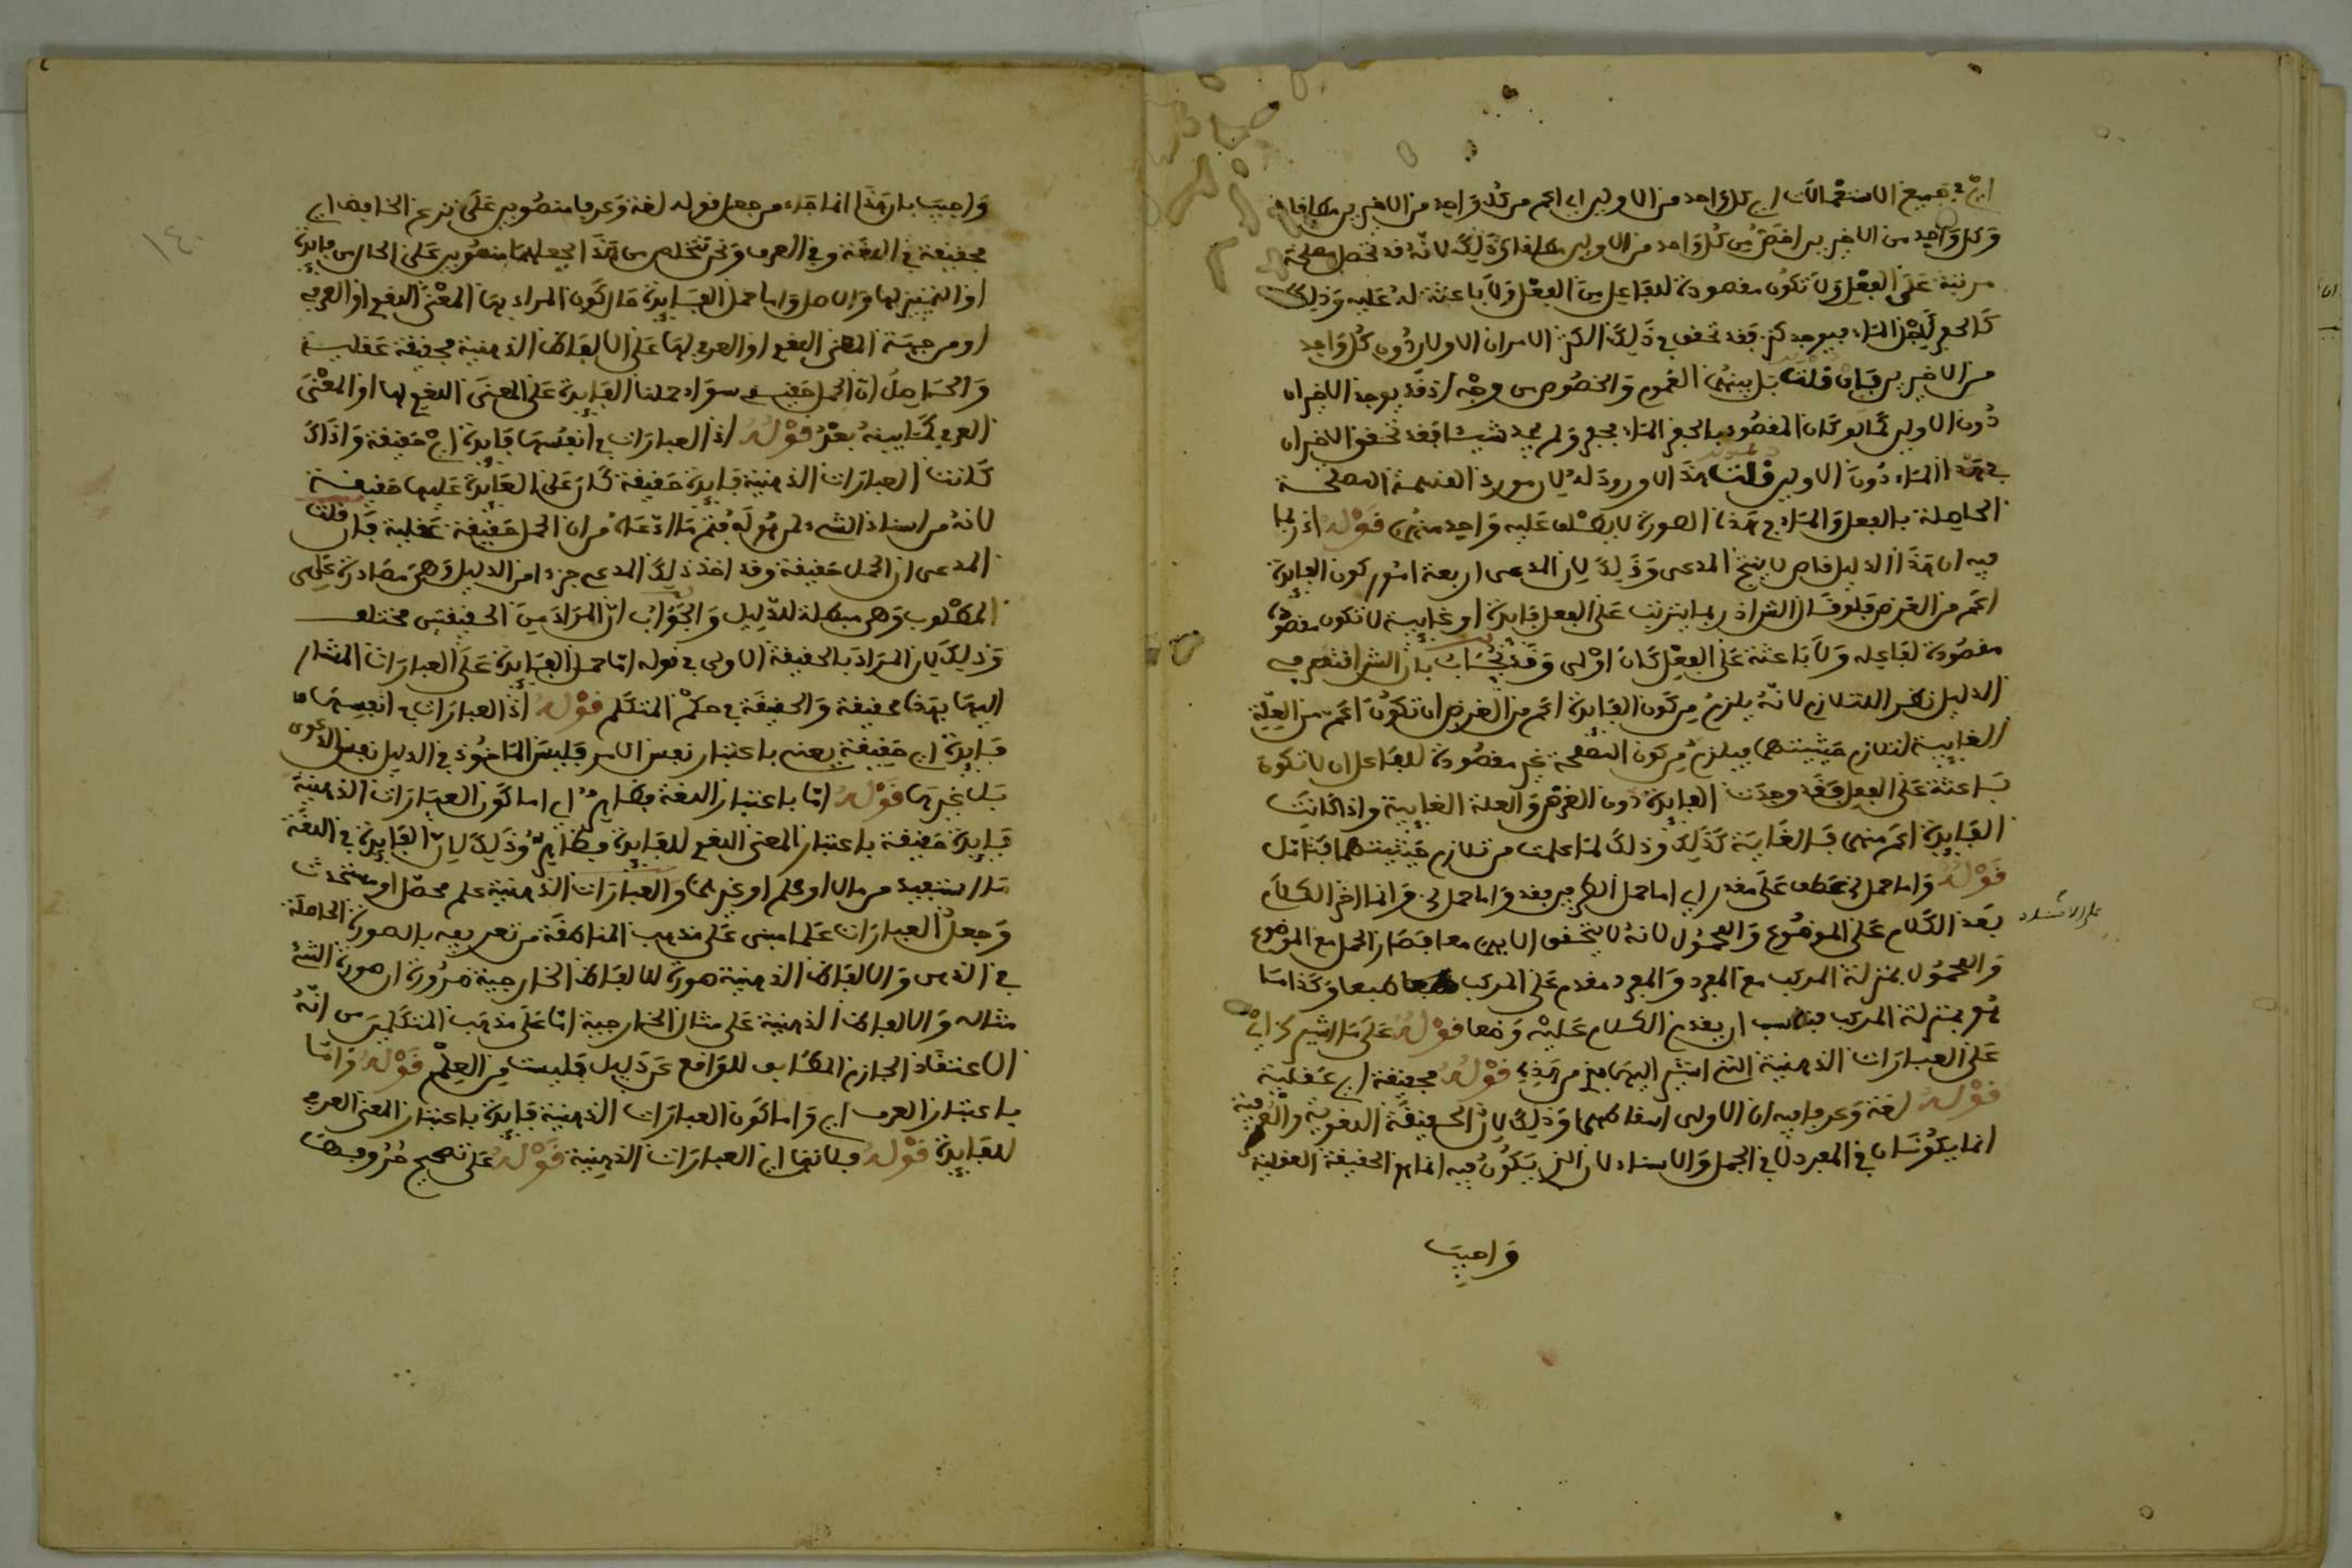 اي في جميع الاستعمالات اي كل واحد من الاولين اي اعم من كل واحد من الاخيرين مطلقا
وكل واحد من الاخيرين اخص من كل واحد من الاولين مطلقا وذلك لانه قد تحصل مصلحة
مرتبة على الفعل ولا تكون مقصودة للفاعل من الفعل ولا باعثة له عليه وذلك
كالحفر ليجد الماء فيوجد كنز فقد تحقق في ذلك الكنز الامران الاولان دون كل واحد
من الاخيرين فان قلت بل بينهما العموم والخصوص من وجه اذ قد يوجد الاخيران
دون الاولين كما لو كان المقصود بالحفر الماء فحفر ولم يجد شيئا فقد تحقق الاخيران
في هذا الماء دون الاولين قلت هذا لا ورود له لان مورد القسمة المصلحة
الحاصلة بالفعل والماء في هذه الصورة لا يطلق عليه واحد منهما قوله اذ ربما
فيه ان هذا الدليل خاص لا ينتج المدعى وذلك لان المدعى اربعة امور كون الفايدة
اعم من الغرض فلو قال الش اذ ربما يترتب على الفعل فايدة او غاية لا تكون
مقصودة لفاعله ولا باعثة على الفعل كان اولى وقد يجاب بان الش اقتصر في
الدليل نظرا للتلازم لانه يلزم من كون الفايدة اعم من الغرض ان تكون اعم من العلة
الغايية لتلازم حيثيتهما فيلزم من كون المصلحة غير مقصودة للفاعل ان لا تكون
باعثة على الفعل فقد وجدت الفايدة دون الغرض والعلة الغايية واذا كانت
الفايدة اعم منهما فالغاية كذلك وذلك لما علمت من تلازم حيثيتهما فتامل
قوله واما حمل الخ عطف على مقدر اي اما حمل الطرفين فقد واما حمل الخ وانما اخر الكلام
على الاسناد
بعد الكلام على الموضوع والمحمول لانه لا يتحقق الا بهما معا فصار الحمل مع الموضوع
والمحمول بمنزلة المركب مع المفرد والمفرد مقدم على المركب طبعا وكذا ما
هو بمنزلة المركب فناسب ان يقدم الكلام عليه وضعا قوله على ما اشير الخ اي
على العبارات الذهنية التي اشير اليها من هذه قوله حقيقة اي عقلية
قوله لغة وعرفا فيه ان الاولى اسقاطهما وذلك لان الحقيقة اللغوية والعرفية
انما يكونان في المفرد لا في الحمل والاسناد لان الذي يكون فيه انما هو الحقيقة العقلية
واجيب
١٤
واجيب بان هذا انما جاء من جعل قوله لغة وعرفا منصوبين على نزع الخافض اي
حقيقة في اللغة وفي العرف ونحن نتخلص من هذا بجعلهما منصوبين على الحال من فايدة
او التمييز لها والاصل واما حمل الفايدة حال كون المراد بها المعنى اللغوي او العرفي
او من جهة المعنى اللغوي او العرفي لها على الالفاظ الذهنية فحقيقة عقلية
والحاصل ان الحمل حقيقة سواء حملنا الفايدة على المعنى اللغوي لها او المعنى
العرفي كما يبينه بعد قوله اذ العبارات في انفسها فايدة اي حقيقة واذا
كانت العبارات الذهنية فايدة حقيقة كان حمل الفايدة عليها حقيقة
لانه من اسناد الشيء لمن هو له فتم ما ادعاه من ان الحمل حقيقة عقلية فان قلت
المدعى ان الحمل حقيقة وقد اخذ ذلك المدعى جزءا من الدليل وهي مصادرة على
المطلوب وهي مبطلة للدليل والجواب ان المراد من الحقيقتين مختلف
وذلك لان المراد بالحقيقة الاولى في قوله اما حمل الفايدة على العبارات المشار
اليها بهذه فحقيقة والحقيقة في حكم المتكلم قوله اذ العبارات في انفسها
فايدة اي حقيقة يعني باعتبار نفس الامر فليس الماخوذ في الدليل نفس الدعوى
بل غيرها قوله اما باعتبار اللغة فظاهر اي اما كون العبارات الذهنية
فايدة حقيقة باعتبار المعنى اللغوي للفايدة فظاهر وذلك لان الفايدة في اللغة
ما استفيد من مال او علم او غيرهما والعبارات الذهنية علم محصل او مستحدث
وجعل العبارات علما مبني على مذهب المناطقة من تعريفه بالصورة الحاصلة
في الذهن والالفاظ الذهنية صورة للالفاظ الخارجية ضرورة ان صورة الشيء
مثاله والالفاظ الذهنية على مثال الخارجية اما على مذهب المتكلمين من انه
الاعتقاد الجازم المطابق للواقع عن دليل فليست من العلم قوله واما
باعتبار العرف اي واما كون العبارات الذهنية فايدة باعتبار المعنى العرفي
للفايدة قوله فلانها اي العبارات الذهنية قوله على تصحيح حروفها